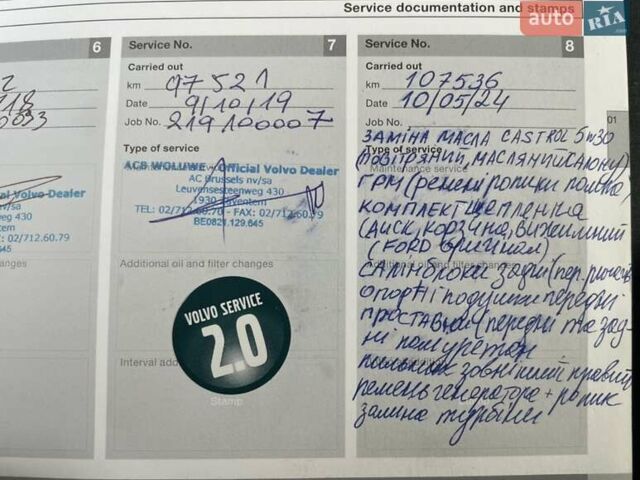 Service documentation and stamps
auto RIA
6
Service No. 7
Service No. 8
Carried out
km 97521
Date 9/10/19
Job No. 219100007
Type of service
ACB WOLUWE Official Volvo Dealer
AC Brussels nv/sa
Leuvensesteenweg 430
1930
TEL: 02/712.60.70 - FAX: 02/712.60.79
BE0821.129.645
Additional oil and filter changes
VOLVO SERVICE
2.0
Interval
Stamp
al Volvo Dealer
nv/sa
weg 430
02/712.60.79
645
Carried out
km 107536
Date 10/05/24
Job No.
01
ЗАМІНА МАСЛА CASTROL 5w30
Type of service
(повітряний, масляний, салону)
Maintenance service
ГРМ (ремені ролики помпа)
комплект щеплення
(диск, корзина, вижимний
(FORD оригінал)
oil and filter changes
сайлнблоки задні
опорні подушки передні
проставки (передні та зад-
ні полиуретан
зовнішній правий
ремень генератора + ролик
заміна турбіни